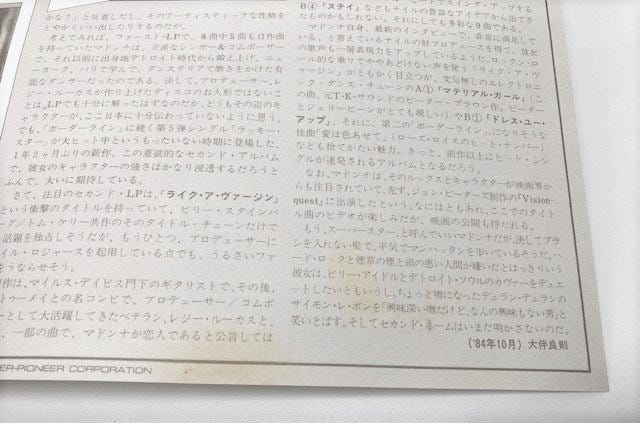 かな？」と反省だし、そのアーティスティックな性格を
とやかくいい出したりするのだが。
考えてみれば、ファースト・LPで、8曲中5曲も自作曲
を持っていたマドンナは、立派なシンガー&コムポーザー
で、それ以前に出身地デトロイト時代から鍛え上げ、ニュ
ーヨーク、パリで学んで、ダンステリアで磨きをかけた有
能なダンサーだったのである。決して、プロデューサー、レ
ジー・ルーカスが作り上げたディスコのお人形ではないこ
とは、LPでも十分に解ったはずなのだが、どうもその辺の
キャラクターが、ここ日本に十分伝わっていないように思う。
でも、「ボーダーライン」に続く第5弾シングル「ラッキー・
スター」が大ヒット中というもったいない時期に登場した、
1年2ヶ月ぶりの新作、この意欲的なセカンド・アルバム
で、彼女のキャラクターの強さはかなり浸透するだろうと
ふんで、大いに期待している。
さて、注目のセカンド・LPは、「ライク・ア・ヴァージン」
という衝撃のタイトルを持っていて、ビリー・スタインバ
ーグ/トム・ケリー共作のそのタイトル・チューンだけで
話題を独占しそうだが、もうひとつ、プロデューサーに
イル・ロジャースを起用している点でも、うるさいファ
をうならせそう。
作は、マイルス・デイビス門下のギタリストで、その後、
トゥーメイとの名コンビで、プロデューサー/コムポ
ーとして大活躍してきたベテラン、レジー・ルーカスと、
、一部の曲で、マドンナが恋人であると公言しては
ER-PIONEER CORPORATION
B④「ステイ」などもナイルの豊富なアイデアから出てき
たものかもしれない。それにしても多彩な9曲である。
マドンナ自身、最新のインタビューで、非常に満足して
いる、と答えているナイルの好プロデュースを得て、彼女
の歌声も一層表現力をアップしているようだ。ロックン・ロ
ール的な乗りでややあどけない声を使う「ライク・ア・ヴ
ァージン」がともかく目立つが、文句無しのエレクトロニ
ック・ダンス・チューンのA①「マテリアル・ガール」(こ
の、元T・K・サウンドのピーター・ブラウン作。ピーター
とジェリービーンがとても親しい)やB①「ドレス・ユー・
アップ」、それに、第二の「ボーダーライン」になりそうな
佳曲「愛は色あせて」(ローズ・ロイスのヒット・ナンバー)
なども捨てがたい魅力。きっと、前作以上にヒット・シン
グルが連発されるアルバムとなるだろう。
なお、マドンナは、そのルックスとキャラクターが映画界か
らも注目されていて、先ず、ジョン・ピーターズ制作の「Vision-
quest」に出演したという。なにはともあれ、ここでのタイト
ル曲のビデオが楽しみだが、映画の公開も待たれる。
もう、スーパースター、と呼んでいいマドンナだが、決してブラ
シを入れない髪で、平気でマンハッタンを歩いているそうだ。ハ
ード・ロックと煙草の煙と頭の悪い人間が嫌いだとはっきりいう
彼女は、ビリー・アイドルとデトロイト・ソウルのカヴァーをデュエ
ットしたいともいうし、ちょっと噂になったデュラン・デュランの
サイモン・レ・ボンを「興味深い噂だけど、なんの興味もない男」と
笑いとばす。そしてセカンド・ネームはいまだ明かさないのだ。
('84年10月) 大伴良則